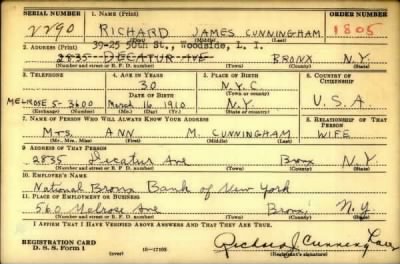 SERIAL NUMBER 1. NAME (Print) ORDER NUMBER
2290 RICHARD JAMES CUNNINGHAM 1805
(First) (Middle) (Last)
2. ADDRESS (Print) 39-25 50th St., Woodside, L. I.
2835 DECATUR AVE BRONX N.Y.
(Number and street or R. F. D. number) (Town) (County) (State)
3. TELEPHONE 4. AGE IN YEARS 5. PLACE OF BIRTH 6. COUNTRY OF CITIZENSHIP
30 N.Y.C.
DATE OF BIRTH (Town or county)
MELROSE 5-3600 March 16, 1910 N.Y. U.S.A.
(Exchange) (Number) (Mo.) (Day) (Yr.) (State or country)
7. NAME OF PERSON WHO WILL ALWAYS KNOW YOUR ADDRESS 8. RELATIONSHIP OF THAT PERSON
Mrs. ANN M. CUNNINGHAM WIFE
(Mr., Mrs., Miss) (First) (Middle) (Last)
9. ADDRESS OF THAT PERSON
2835 Decatur Ave Bronx N.Y.
(Number and street or R. F. D. number) (Town) (County) (State)
10. EMPLOYER'S NAME
National Bronx Bank of New York
11. PLACE OF EMPLOYMENT OR BUSINESS
560 Melrose Ave Bronx N.Y.
(Number and street or R. F. D. number) (Town) (County) (State)
I AFFIRM THAT I HAVE VERIFIED ABOVE ANSWERS AND THAT THEY ARE TRUE.
REGISTRATION CARD
D. S. S. Form 1 (over) 16-17105 Richard J. Cunningham
(Registrant's signature)